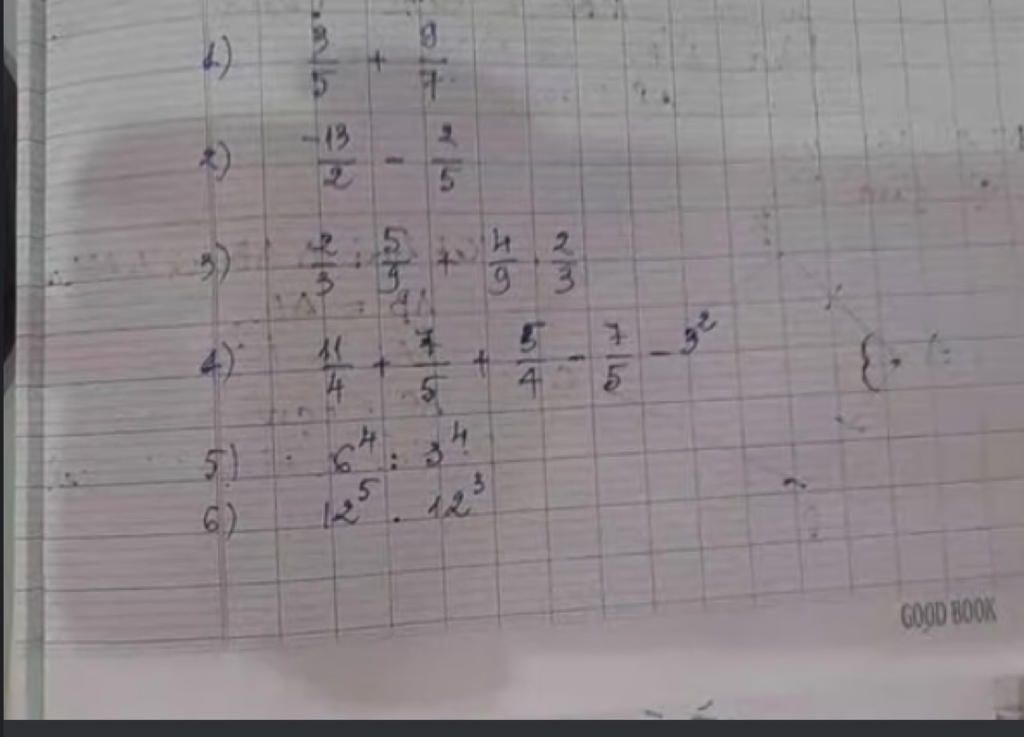 1) 3/5 + 9/7
2) -13/2 - 2/5
3) 2/3 : 5/9 + 4/9 . 2/3
4) 11/4 + 7/5 + 5/4 - 7/5 - 3²
5) 6⁴ : 3⁴
6) 12⁵ . 12³
GOOD BOOK